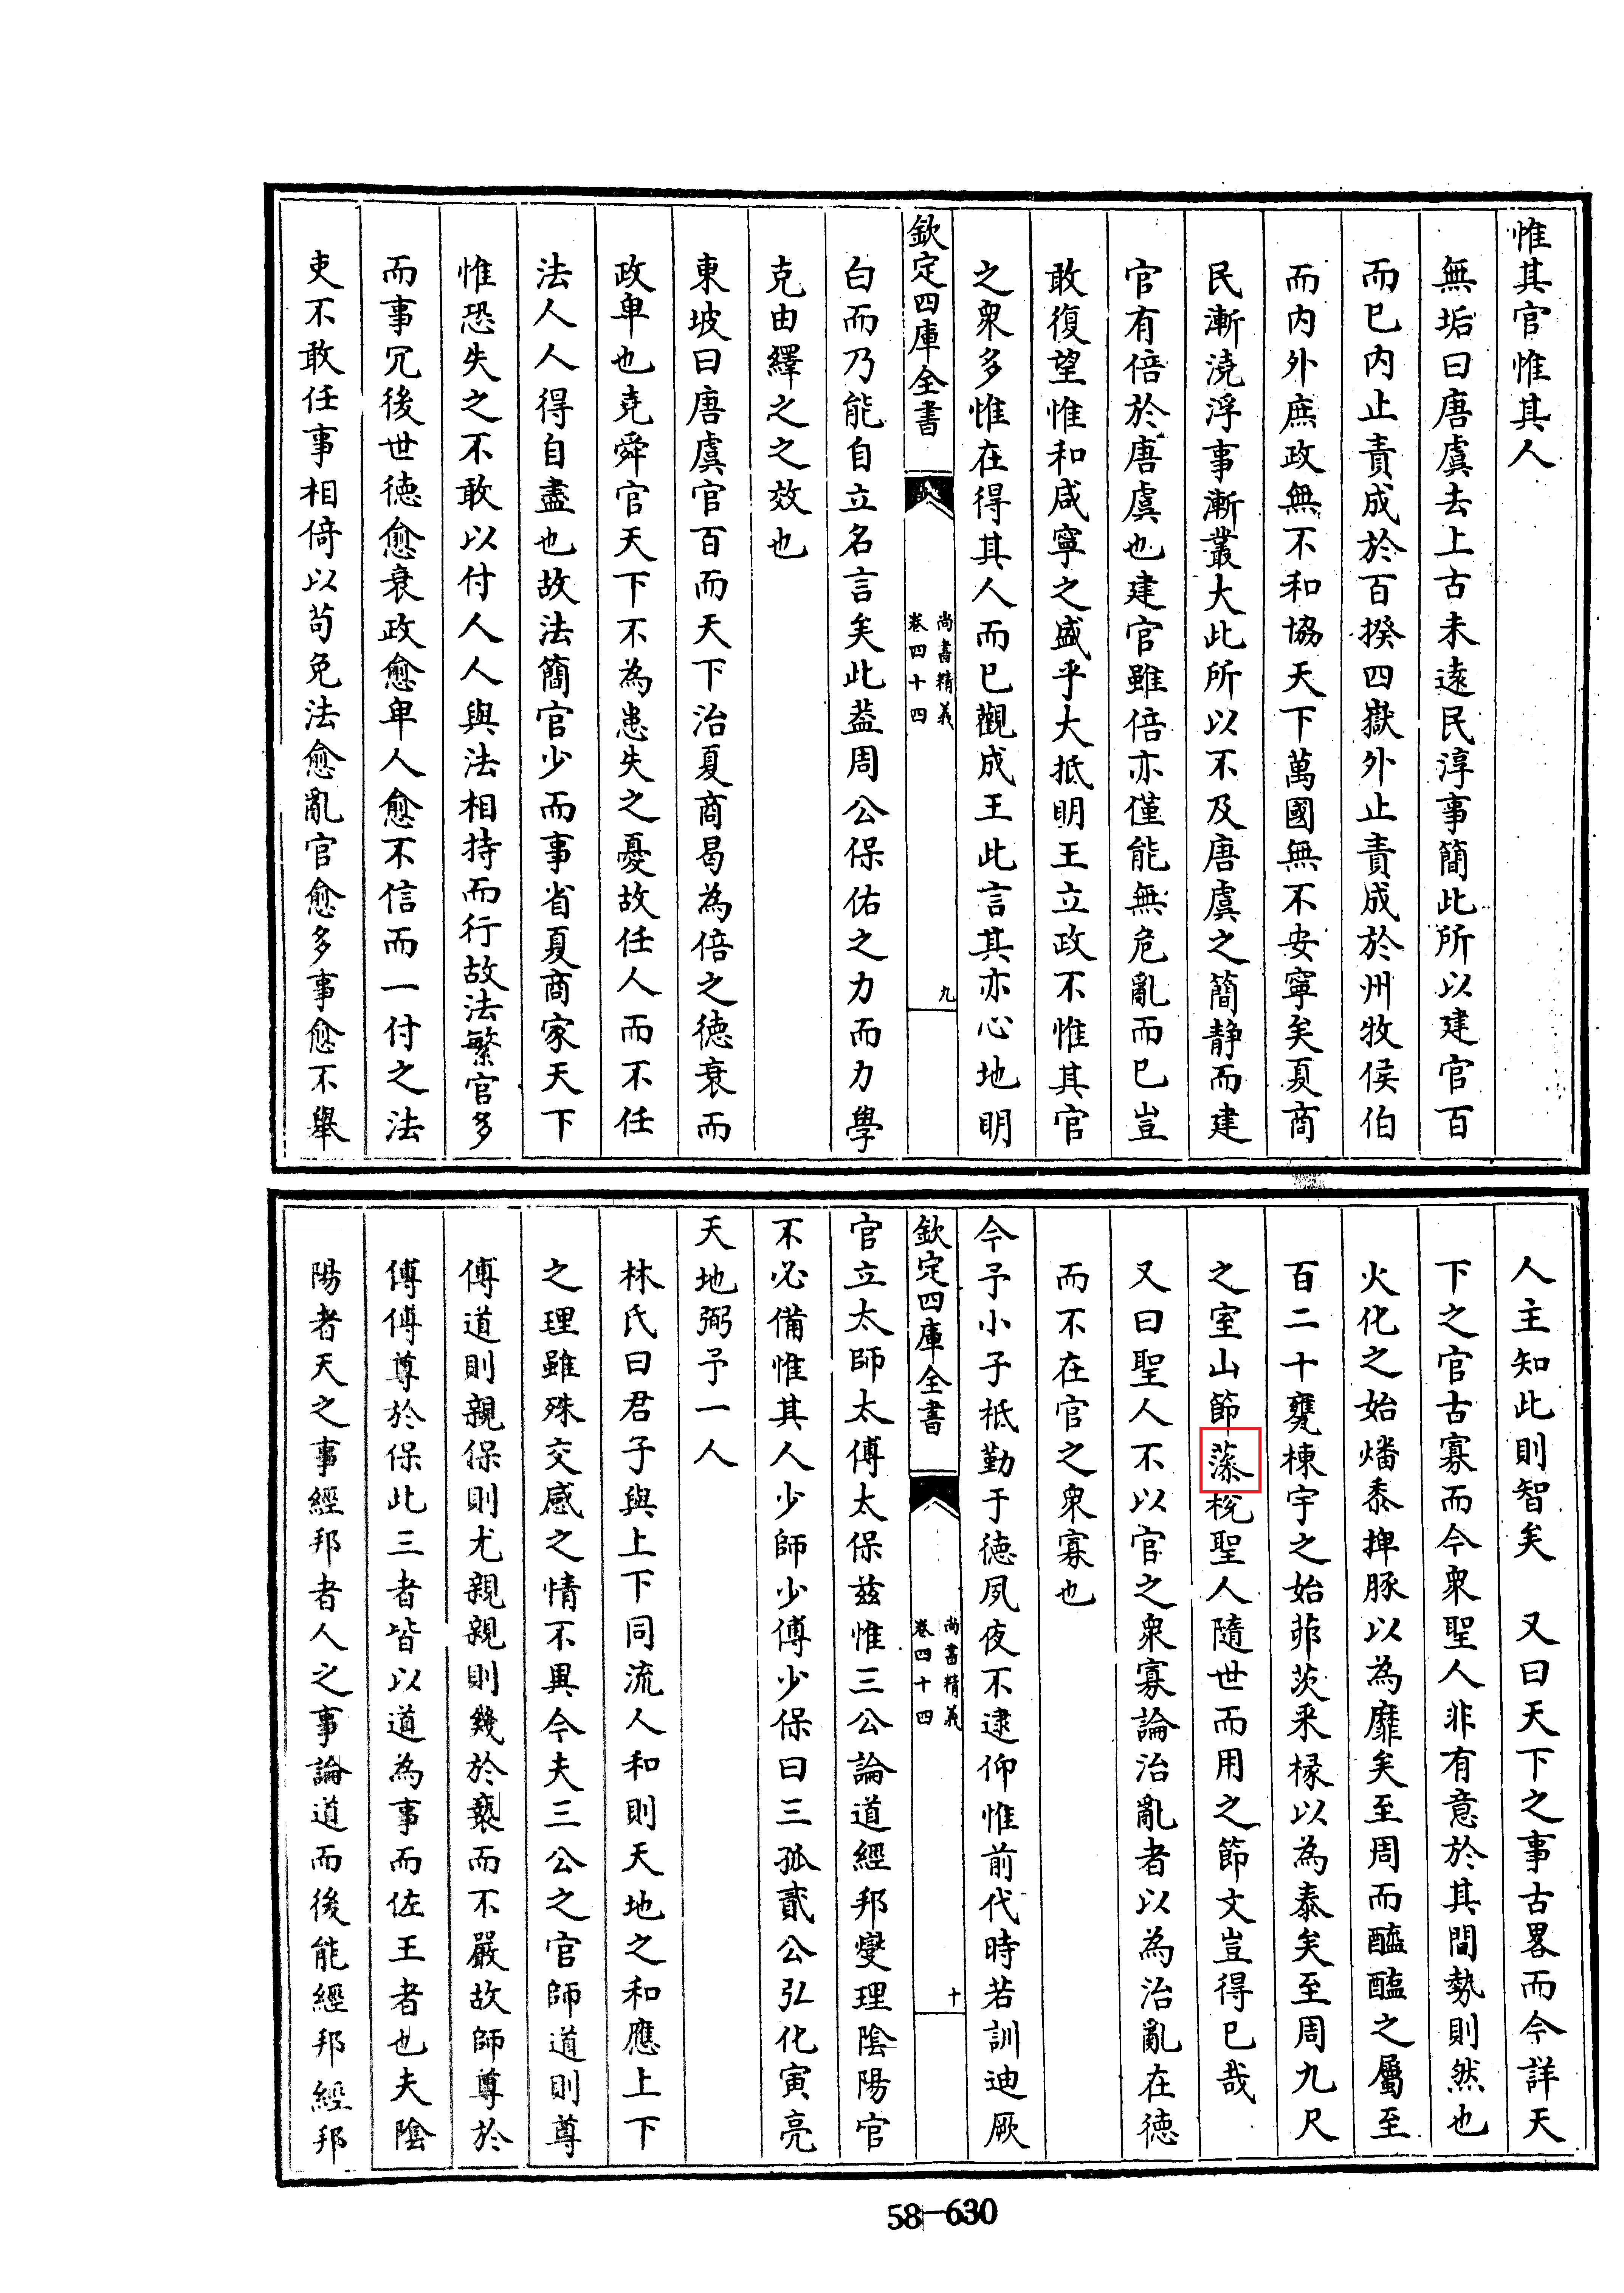 惟其官惟其人
無垢曰唐虞去上古未逺民淳事簡此所以建官百
而已内止責成於百揆四嶽外止責成於州牧侯伯
而内外庶政無不和協天下萬國無不安寧矣夏商
民漸澆浮事漸叢大此所以不及唐虞之簡静而建
官有倍於唐虞也建官雖倍亦僅能無危亂而已豈
敢復望惟和咸寧之盛乎大抵明王立政不惟其官
之衆多惟在得其人而已觀成王此言其亦心地明
欽定四庫全書
尚書精義
卷四十四
九
白而乃能自立名言矣此葢周公保佑之力而力學
克由繹之之效也
東坡曰唐虞官百而天下治夏商曷為倍之徳衰而
政卑也堯舜官天下不為患失之憂故任人而不任
法人人得自盡也故法簡官少而事省夏商家天下
惟恐失之不敢以付人人與法相持而行故法繁官多
而事冗後世徳愈衰政愈卑人愈不信而一付之法
吏不敢任事相倚以苟免法愈亂官愈多事愈不舉
人主知此則智矣　又曰天下之事古畧而今詳天
下之官古寡而今衆聖人非有意於其間勢則然也
火化之始燔黍捭豚以為靡矣至周而醯醢之屬至
百二十甕棟宇之始茆茨采椽以為泰矣至周九尺
之室山節藻梲聖人隨世而用之節文豈得已哉
又曰聖人不以官之衆寡論治亂者以為治亂在徳
而不在官之衆寡也
今予小子祗勤于徳夙夜不逮仰惟前代時若訓迪厥
欽定四庫全書
尚書精義
卷四十四
十
官立太師太傅太保兹惟三公論道經邦燮理陰陽官
不必備惟其人少師少傅少保曰三孤貳公弘化寅亮
天地弼予一人
林氏曰君子與上下同流人和則天地之和應上下
之理雖殊交感之情不異今夫三公之官師道則尊
傅道則親保則尤親親則幾於褻而不嚴故師尊於
傅傅尊於保此三者皆以道為事而佐王者也夫陰
陽者天之事經邦者人之事論道而後能經邦經邦
58-630